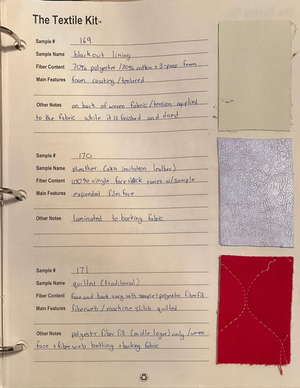 The Textile Kit™
Sample # 169
Sample Name blackout lining
Fiber Content 70% polyester / 30% cotton + 3-pass foam
Main Features foam coating / textured
Other Notes on back of woven fabric / tension applied
to the fabric while it is finished and dried
Sample # 170
Sample Name pleather (aka imitation leather)
Fiber Content 100% vinyl face + back varies w/ sample
Main Features expanded film face
Other Notes laminated to backing fabric
Sample # 171
Sample Name quilted (traditional)
Fiber Content face and back vary with sample + polyester fiber fill
Main Features fiberweb / machine stitch quilted
Other Notes polyester fiber fill (middle layer) only / woven
face + fiberweb batting + backing fabric